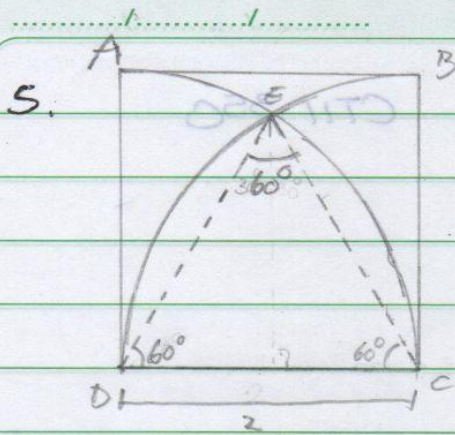 A B
5.
E
60°
60° 60°
D C
2